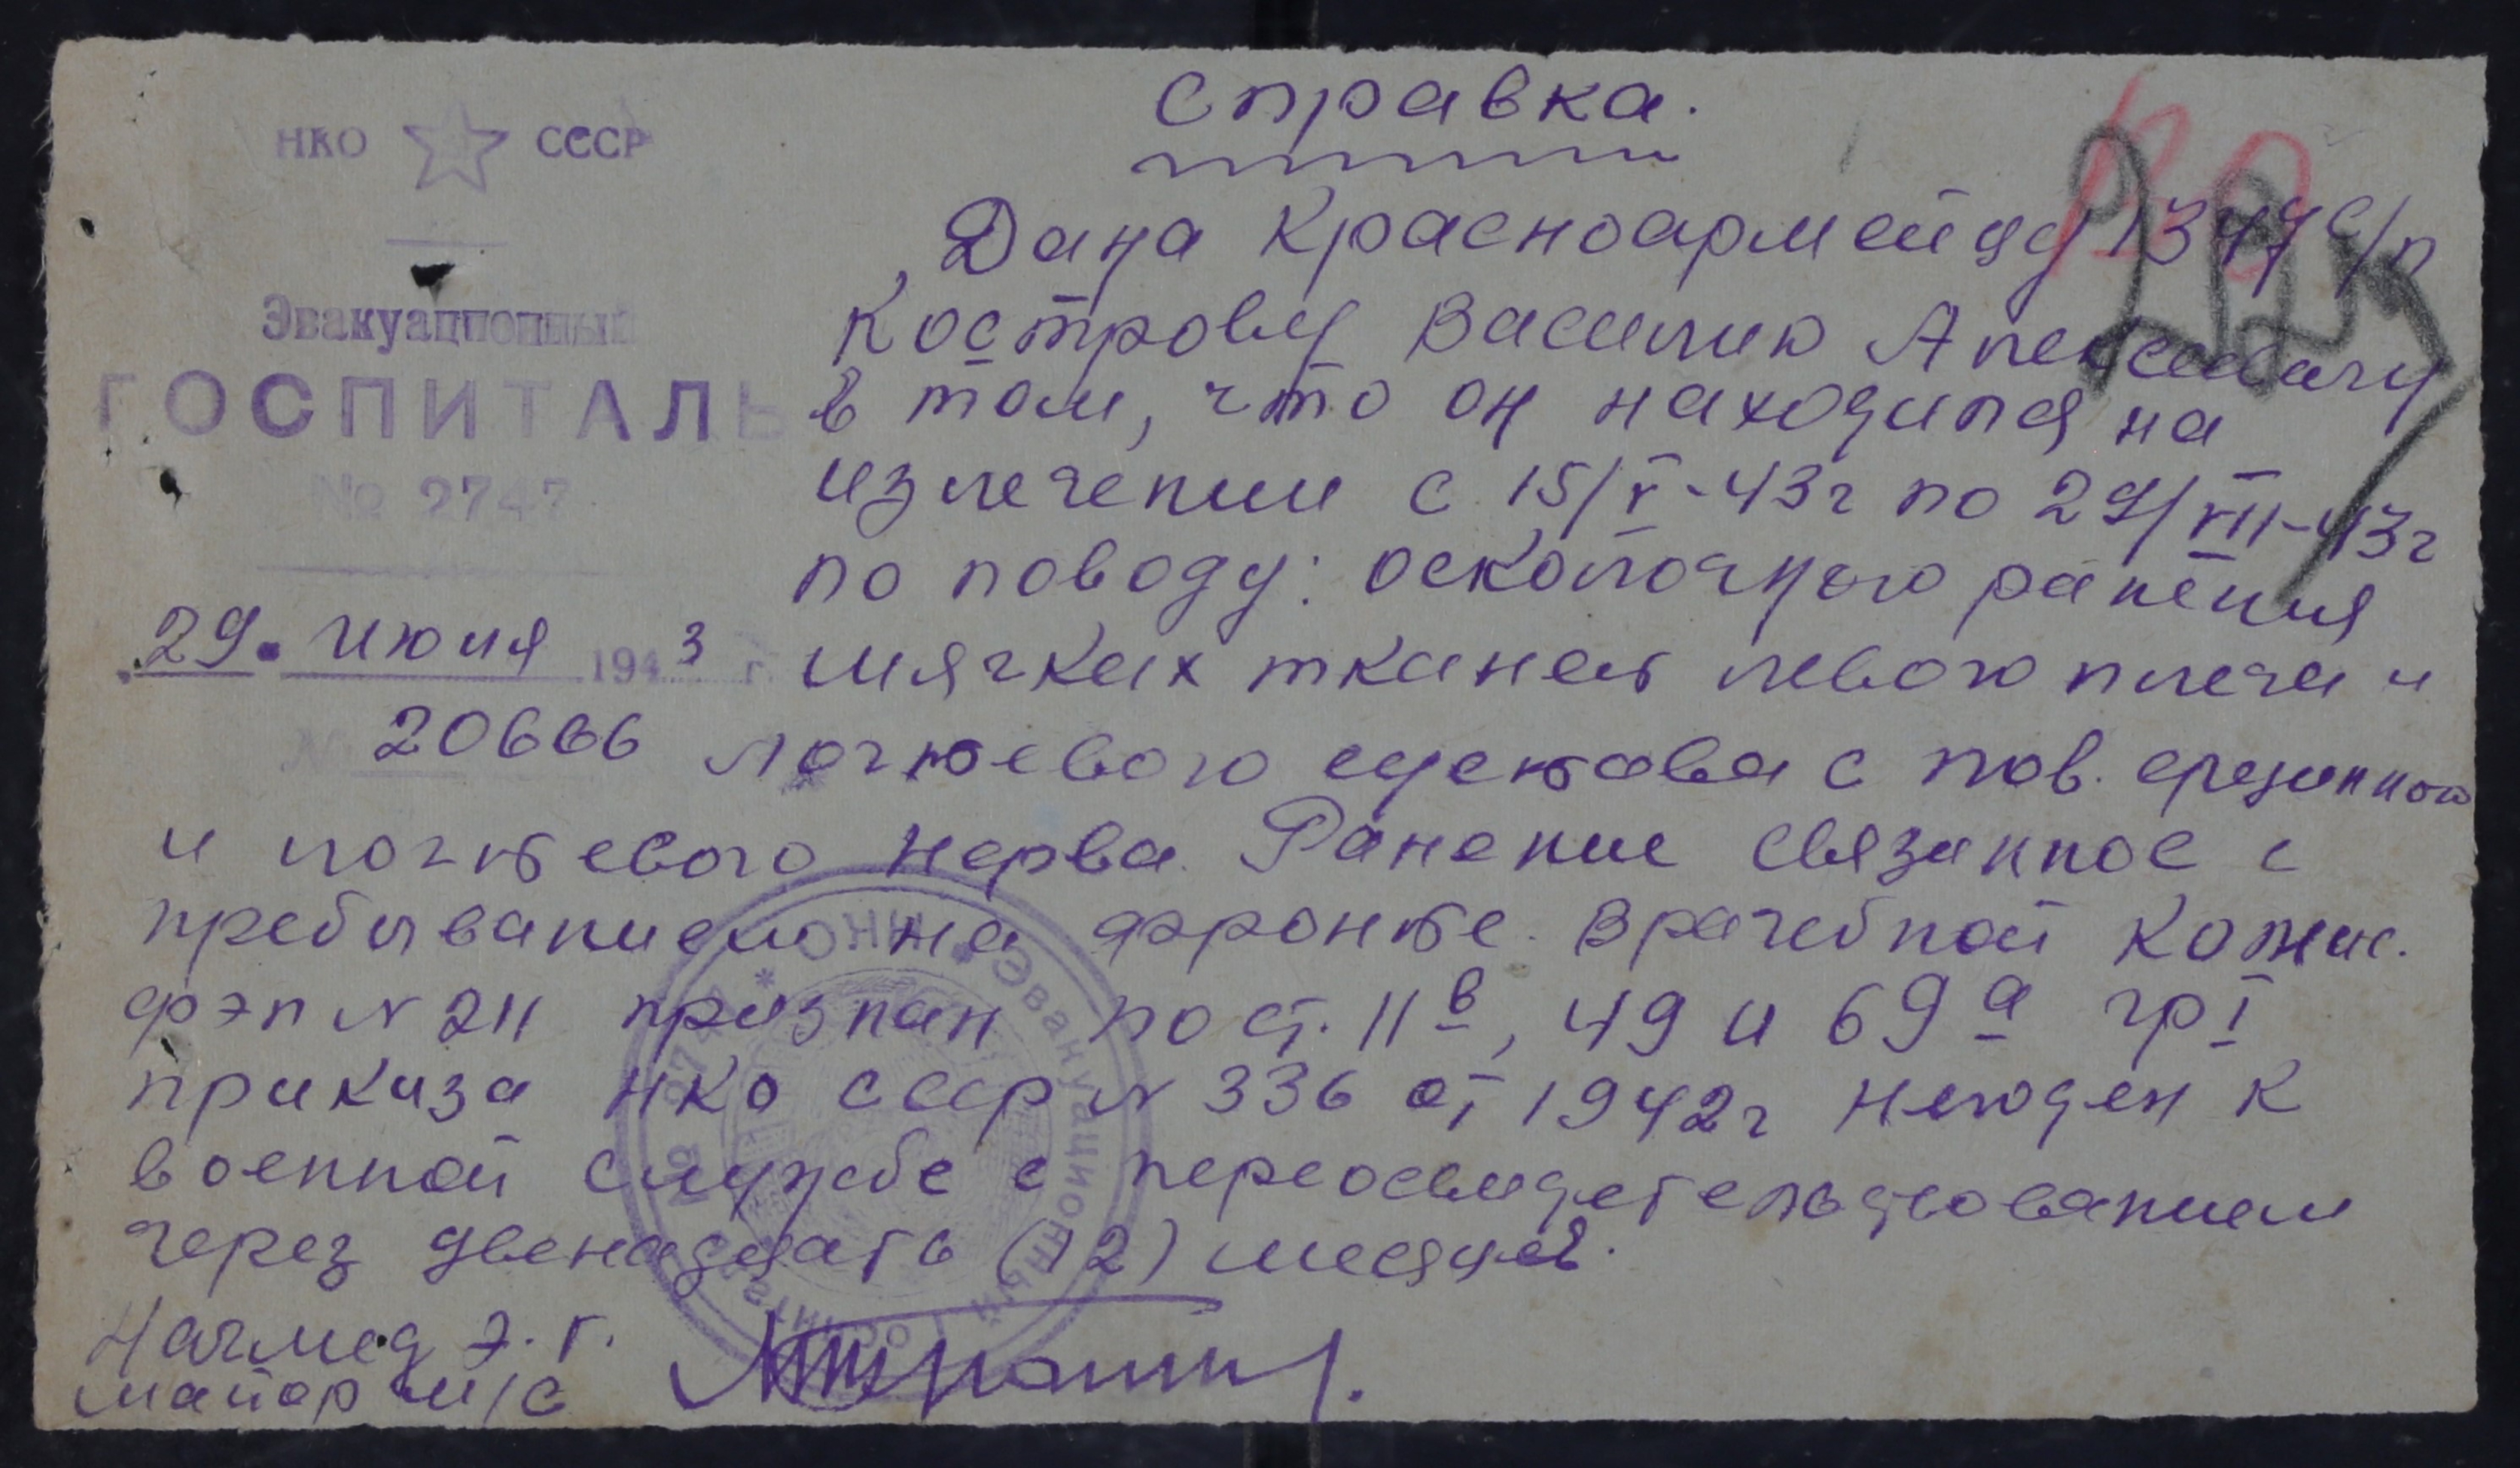 Справка.
НКО СССР
Дана Красноармейцу 1347 с/п
Эвакуационный
Кострову Василию Алексеевичу
ГОСПИТАЛЬ
в том, что он находился на
№ 2747
излечении с 15/V-43г по 29/VII-43г
по поводу: осколочного ранения
29. июля 1943 г.
мягких тканей левого плеча и
№ 20666
локтевого сустава с пов. срединного
и локтевого нерва. Ранение связанное с
пребыванием на фронте. Врачебной комис.
ФЭП N 211 признан по ст. 11в, 49 и 69а гр I
приказа НКО СССР N 336 от 1942г негоден к
военной службе с переосвидетельствованием
через двенадцать (12) месяцев.
Начмед э.г.
майор м/с
Эвакуационный Госпиталь № 2747 * НКО